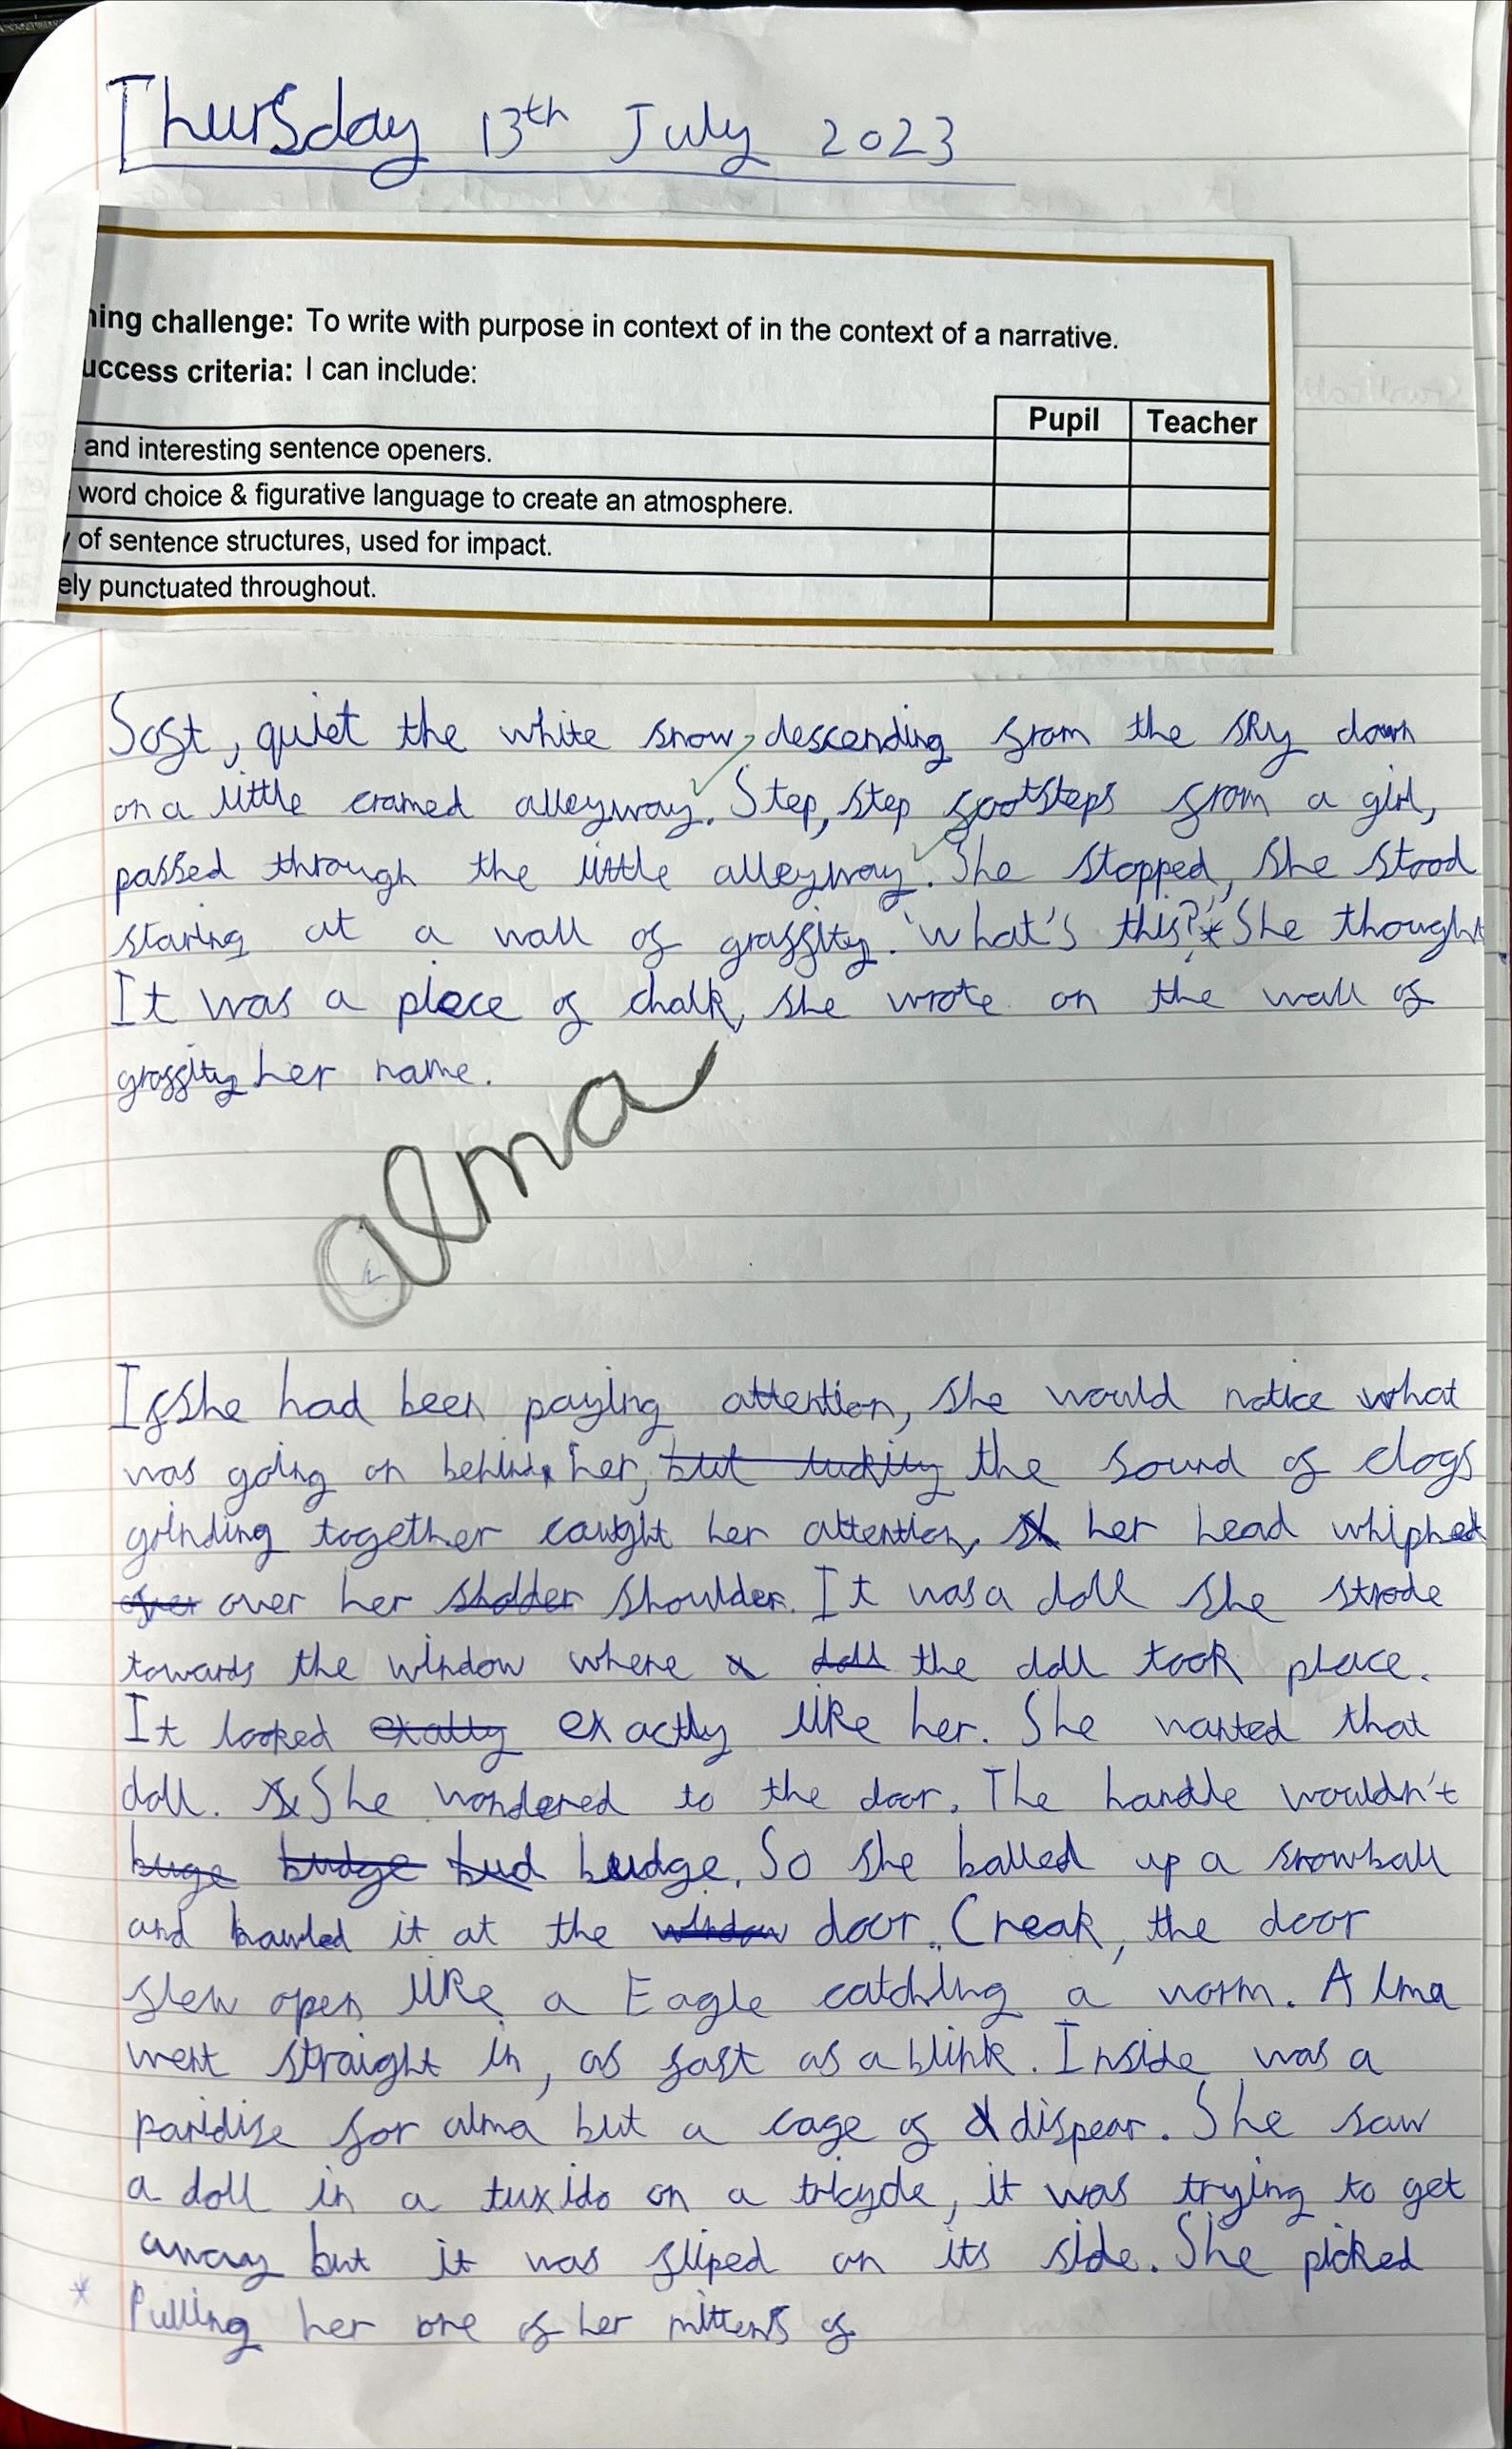 Thursday 13th July 2023
ing challenge: To write with purpose in context of in the context of a narrative.
uccess criteria: I can include:
Pupil Teacher
and interesting sentence openers.
word choice & figurative language to create an atmosphere.
of sentence structures, used for impact.
ely punctuated throughout.
Soft, quiet the white snow, descending from the sky down
on a little cramed alleyway. Step, step footsteps from a girl,
passed through the little alleyway. She stopped, she stood
staring at a wall of graffity. 'what's this?'* She thought.
It was a piece of chalk, she wrote on the wall of
graffity her name.
alma
If she had been paying attention, she would notice what
was going on behind her, but luckily the sound of clogs
grinding together caught her attention, her head whipped
over her sholder shoulder. It was a doll she strode
towards the window where a doll the doll took place.
It looked exatly exactly like her. She wanted that
doll. She wondered to the door. The handle wouldn't
buge budge bud budge. So she balled up a snowball
and hawled it at the window door. Creak, the door
flew open like a Eagle catching a worm. Alma
went straight in, as fast as a blink. Inside was a
paridise for alma but a cage of dispear. She saw
a doll in a tuxido on a tricycle, it was trying to get
away but it was fliped on its side. She picked
* Pulling her one of her mittens of